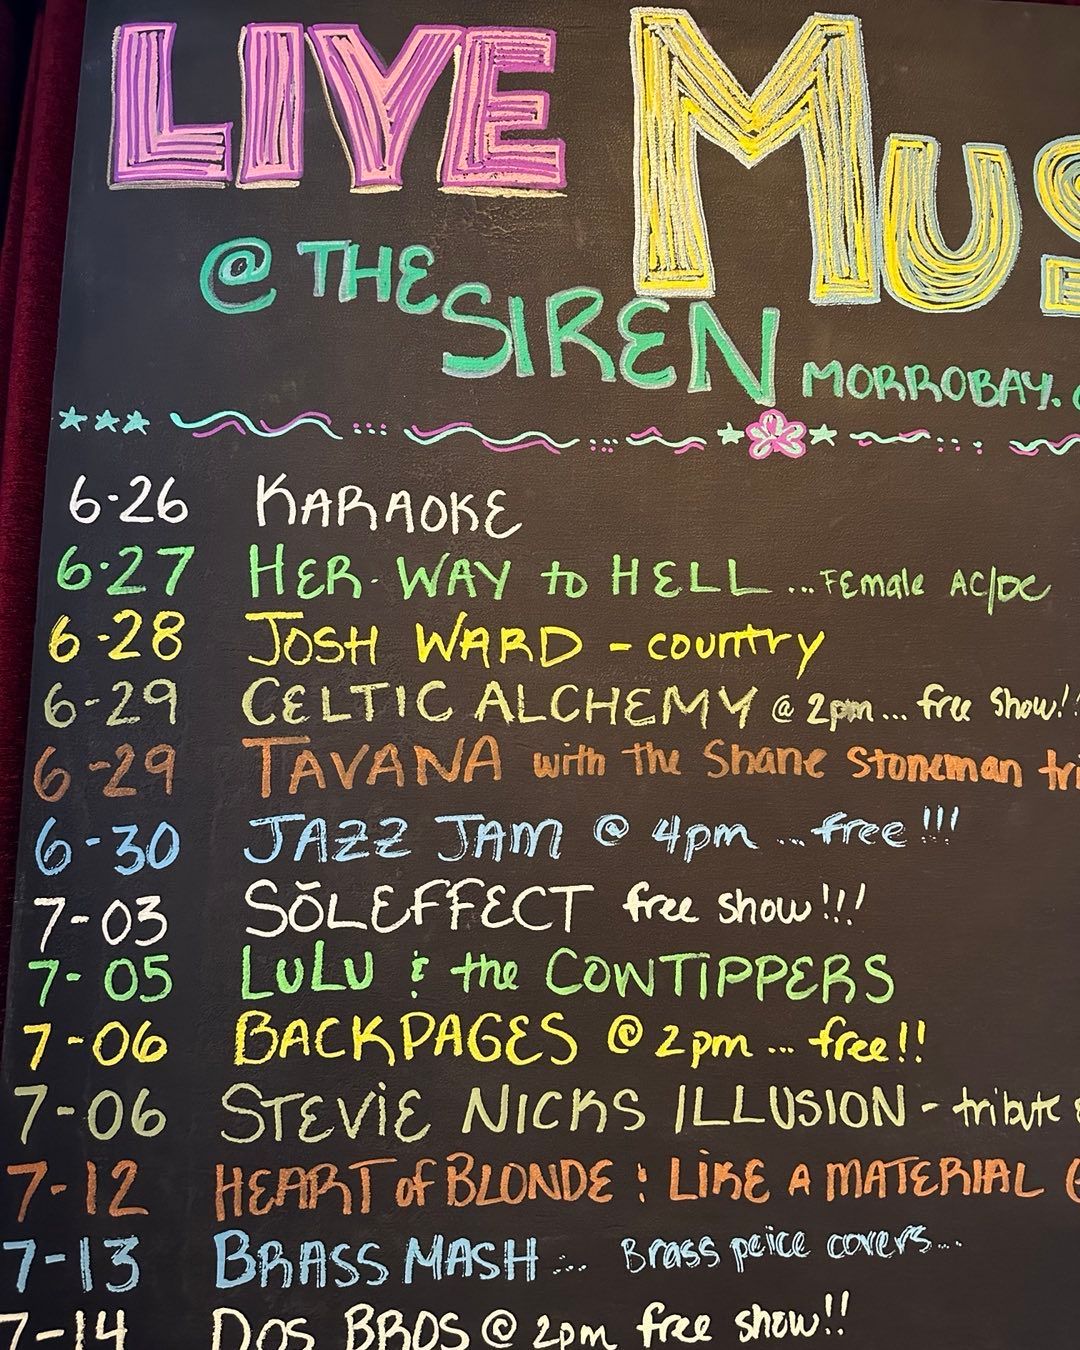 LIVE MUS
@ THE SIREN MORROBAY.
6-26 KARAOKE
6-27 HER WAY to HELL ... FEmale AC/DC
6-28 JOSH WARD - country
6-29 CELTIC ALCHEMY @ 2pm... free show!!
6-29 TAVANA with the Shane Stoneman tri
6-30 JAZZ JAM @ 4pm ... free!!!
7-03 SŌLEFFECT free show!!!
7-05 LULU & the COWTIPPERS
7-06 BACKPAGES @ 2pm ... free!!
7-06 STEVIE NICKS ILLUSION - tribute
7-12 HEART of BLONDE & LIKE A MATERIAL
7-13 BRASS MASH ... Brass peice covers...
7-14 DOS BROS @ 2pm free show!!